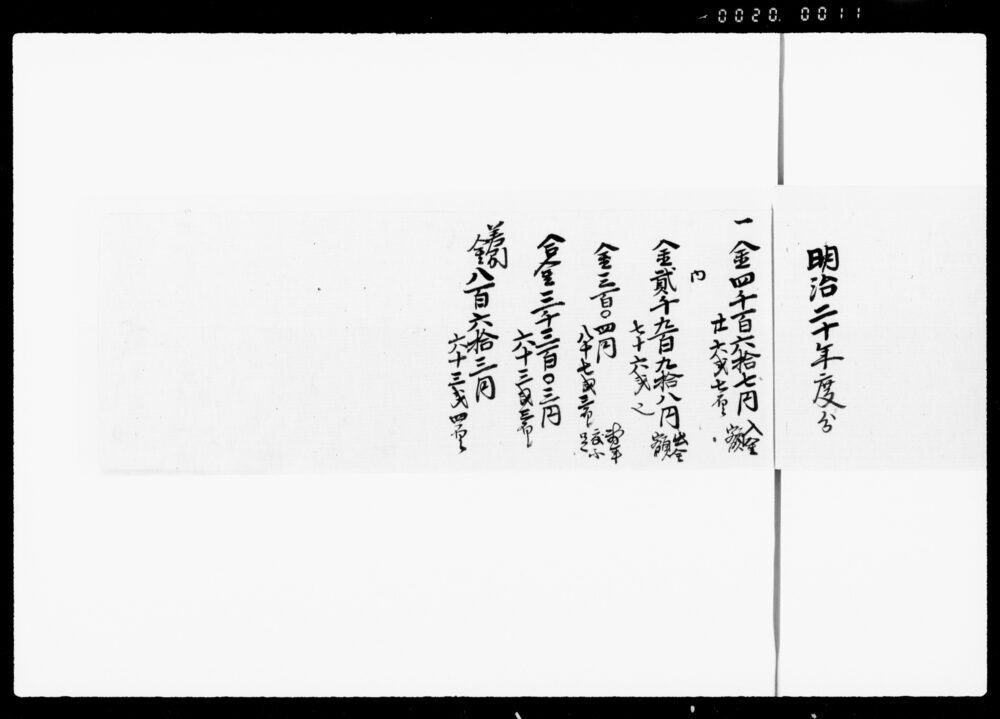 0020. 0011
明治二十年度分
一金四千百六拾七円 入金額
廿六戔七厘
内
金貳千九百九拾八円 出金額
七十六戔
金三百〇四円
八十七戔三厘
合金三千三百〇三円
六十三戔三厘
差引金八百六拾三円
六十三戔四厘